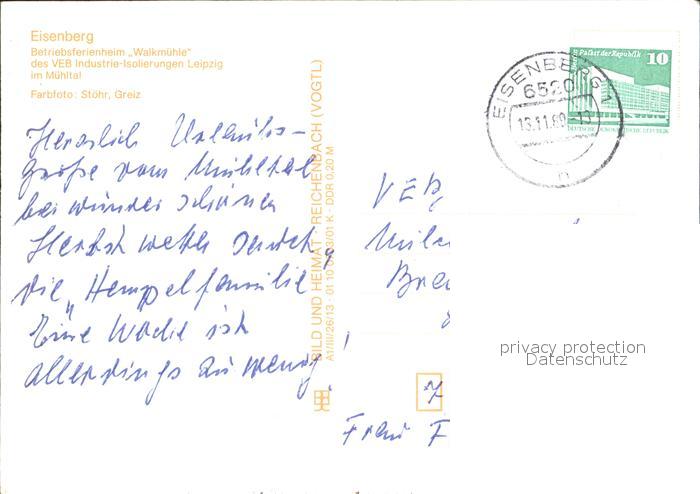 Eisenberg
Betriebsferienheim „Walkmühle"
des VEB Industrie-Isolierungen Leipzig
im Mühltal
Farbfoto: Stöhr, Greiz
Herzlich Urlaubs-
grüße vom Mühltal
bei wunder schönen
Herbst wetter sendet
die „Hempelfamilie
Eine Woche ist
allerdings zu wenig!
BILD UND HEIMAT REICHENBACH (VOGTL)
A1/III/26/13 01 10 03/01 K DDR 0,20 M
EISENBERG 1
6520
13.11.89
n
Palast der Republik
10
DEUTSCHE DEMOKRATISCHE REPUBLIK
VEB,
7
Frau F
privacy protection
Datenschutz